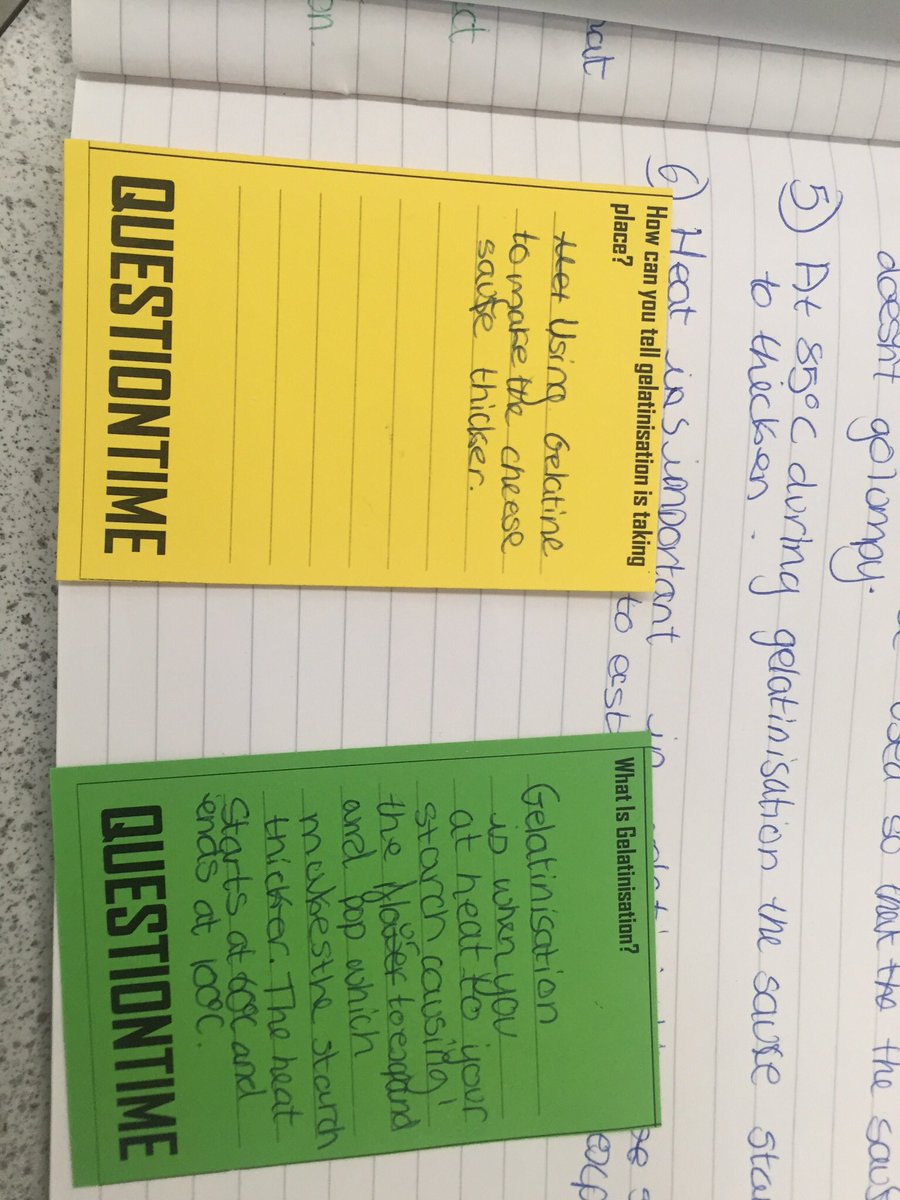 doesn't go lumpy.
used so that the the sau
5) At 85°C during gelatinisation the sause sta
to thicken.
6) Heat ins important in
to
How can you tell gelatinisation is taking
place?
Using Gelatine
to make the cheese
sause thicker.
QUESTION TIME
What Is Gelatinisation?
Gelatinisation
is when you
at heat to your
starch causing
the flour to expand
and pop which
makes the starch
thicker. The heat
Starts at 60°C and
ends at 100°C.
QUESTION TIME